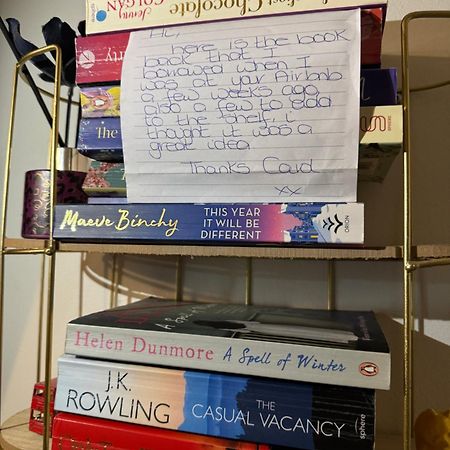 Jenny COLGAN
Chocolate
Hi,
here is the book
back that i
borrowed when I
was at your Airbnb
a few weeks ago,
also a few to add
to the shelf, i
thought it was a
great idea.
Thanks
xx
The
Maeve Binchy
THIS YEAR
IT WILL BE
DIFFERENT
ORION
Helen Dunmore A Spell of Winter
J.K.
ROWLING
THE
CASUAL VACANCY
sphere